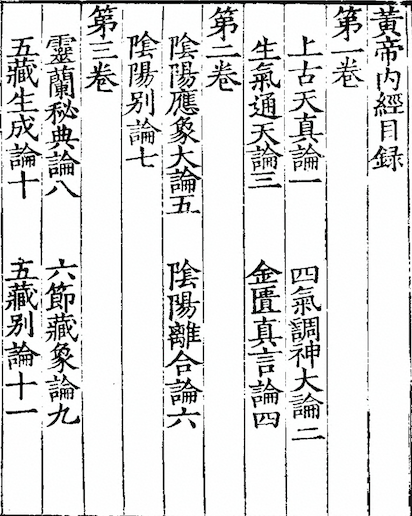 黃帝內經目録
第一卷
上古天真論一　四氣調神大論二
生氣通天論三　金匱真言論四
第二卷
陰陽應象大論五　陰陽離合論六
陰陽別論七
第三卷
靈蘭秘典論八　六節藏象論九
五藏生成論十　五藏別論十一